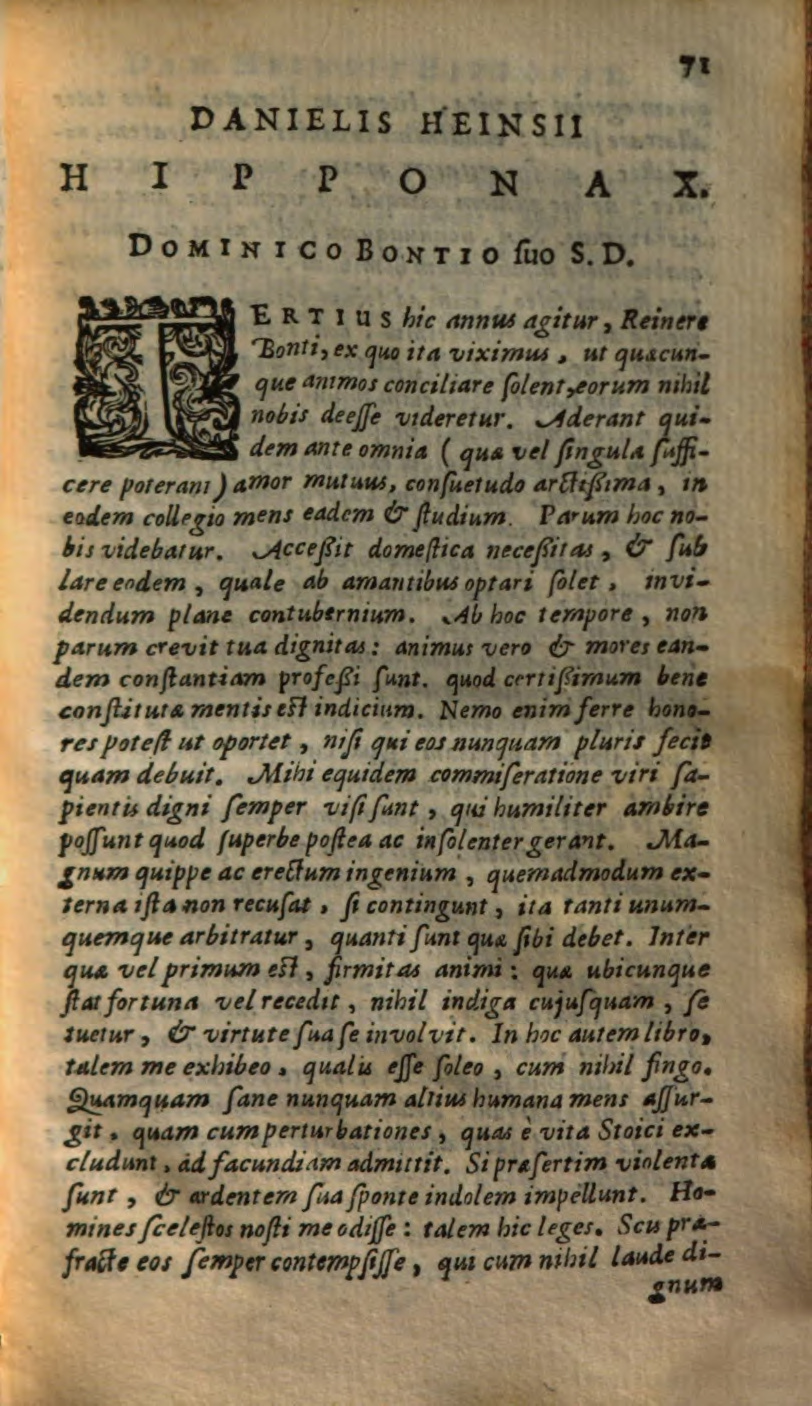 71
DANIELIS HEINSII
HIPPONAX.
DOMINICO BONTIO ſuo S. D.
TERTIUS hic annus agitur, Reinere
Bonti, ex quo ita viximus, ut quæcun-
que animos conciliare ſolent, eorum nihil
nobis deeſſe videretur. Aderant qui-
dem ante omnia (quæ vel ſingula ſuffi-
cere poterant) amor mutuus, conſuetudo arctiſſima, in
eodem collegio mens eadem & ſtudium. Parum hoc no-
bis videbatur. Acceſſit domeſtica neceſſitas, & ſub
lare eodem, quale ab amantibus optari ſolet, invi-
dendum plane contubernium. Ab hoc tempore, non
parum crevit tua dignitas: animus vero & mores ean-
dem conſtantiam profeſſi ſunt. quod certiſſimum bene
conſtitutæ mentis eſt indicium. Nemo enim ferre hono-
res poteſt ut oportet, niſi qui eos nunquam pluris fecit
quam debuit. Mihi equidem commiſeratione viri ſa-
pientis digni ſemper viſi ſunt, qui humiliter ambire
poſſunt quod ſuperbe poſtea ac inſolenter gerant. Ma-
gnum quippe ac erectum ingenium, quemadmodum ex-
terna iſta non recuſat, ſi contingunt, ita tanti unum-
quemque arbitratur, quanti ſunt quæ ſibi debet. Inter
quæ vel primum eſt, firmitas animi: quæ ubicunque
ſtat fortuna vel recedit, nihil indiga cujuſquam, ſe
tuetur, & virtute ſua ſe involvit. In hoc autem libro,
talem me exhibeo, qualis eſſe ſoleo, cum nihil fingo.
Quamquam ſane nunquam altius humana mens aſſur-
git, quam cum perturbationes, quas è vita Stoici ex-
cludunt, ad facundiam admittit. Si præſertim violentæ
ſunt, & ardentem ſua ſponte indolem impellunt. Ho-
mines ſceleſtos noſti me odiſſe: talem hic leges. Scis præ-
fracte eos ſemper contempſiſſe, qui cum nihil laude di-
gnum